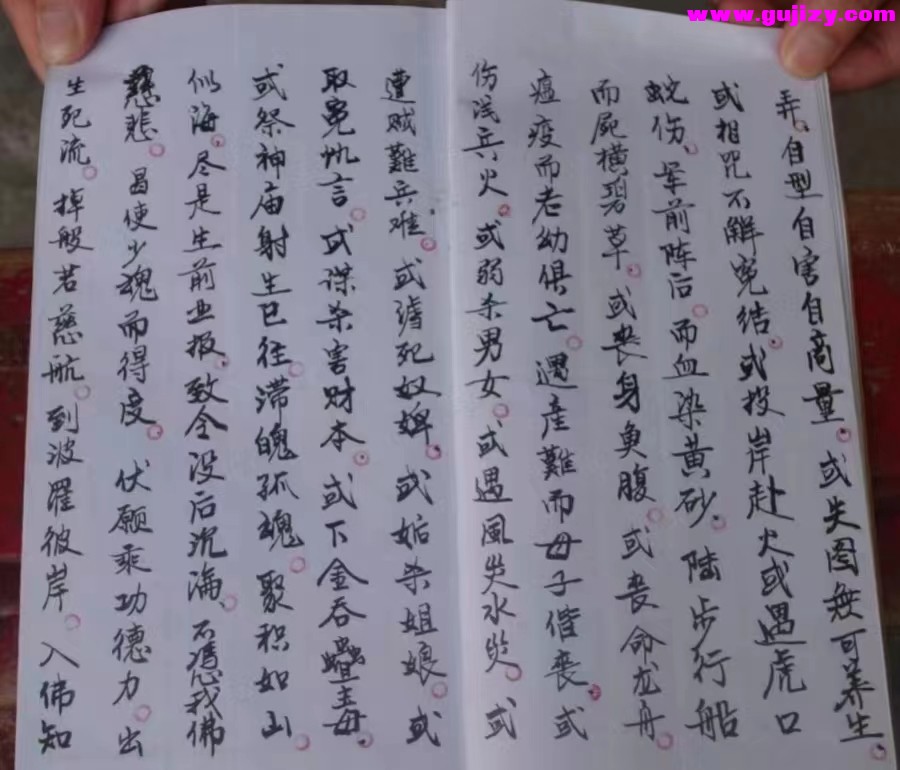 www.gujizy.com
弄。自型自害自商量。或失图無可养生。
或相咒不解冤结。或投岸赴火或遇虎口
蛇伤。军前阵后。而血染黄砂。陆步行船
而屍横碧草。或丧身魚腹。或丧命龙舟
瘟疫而老幼俱亡。遇産難而母子偕丧。或
伤浅兵火。或弱杀男女。或遇風災水災。或
遭贼難兵难。或死奴婢。或妬杀姐娘。或
取冤仇言。或谋杀害财本。或下金吞蠱毒。
或祭神庙射生已往。滞魄孤魂。聚积如山
似海。尽是生前业报。致令没后沉淪。不憑我佛
慈悲。曷使少魂而得度。伏願乘功德力。出
生死流。掉般若慈航。到波羅彼岸。入佛知